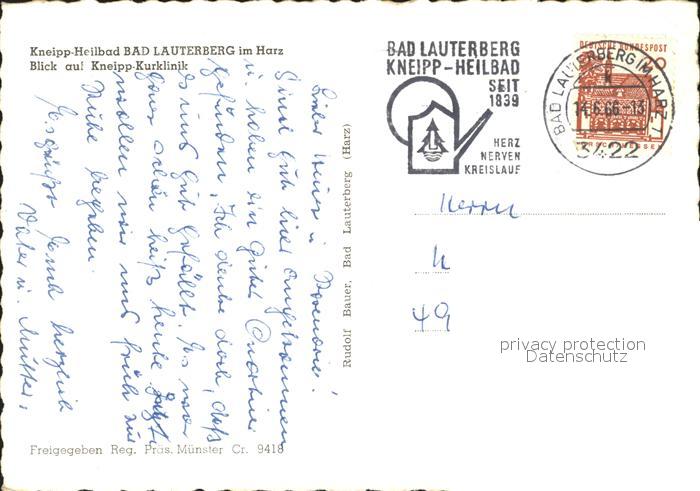 Kneipp-Heilbad BAD LAUTERBERG im Harz
Blick auf Kneipp-Kurklinik
BAD LAUTERBERG
KNEIPP-HEILBAD
SEIT
1839
HERZ
NERVEN
KREISLAUF
DEUTSCHE BUNDESPOST
BAD LAUTERBERG IM HARZ 1
k
14.6.66-13
3422
Herrn
H
49
privacy protection
Datenschutz
Rudolf Bauer, Bad Lauterberg (Harz)
Lieber Heiner u.
Sind gut hier angekommen
u. haben ein gutes Quartier
gefunden. Ich denke doch, daß
es uns gut gefällt. Es war
ganz schön heiß heute. Jetzt
wollen wir uns früh zur
Ruhe begeben.
Es grüßt Euch herzlich
Vater u. Mutter.
Freigegeben Reg. Präs. Münster Cr. 9418